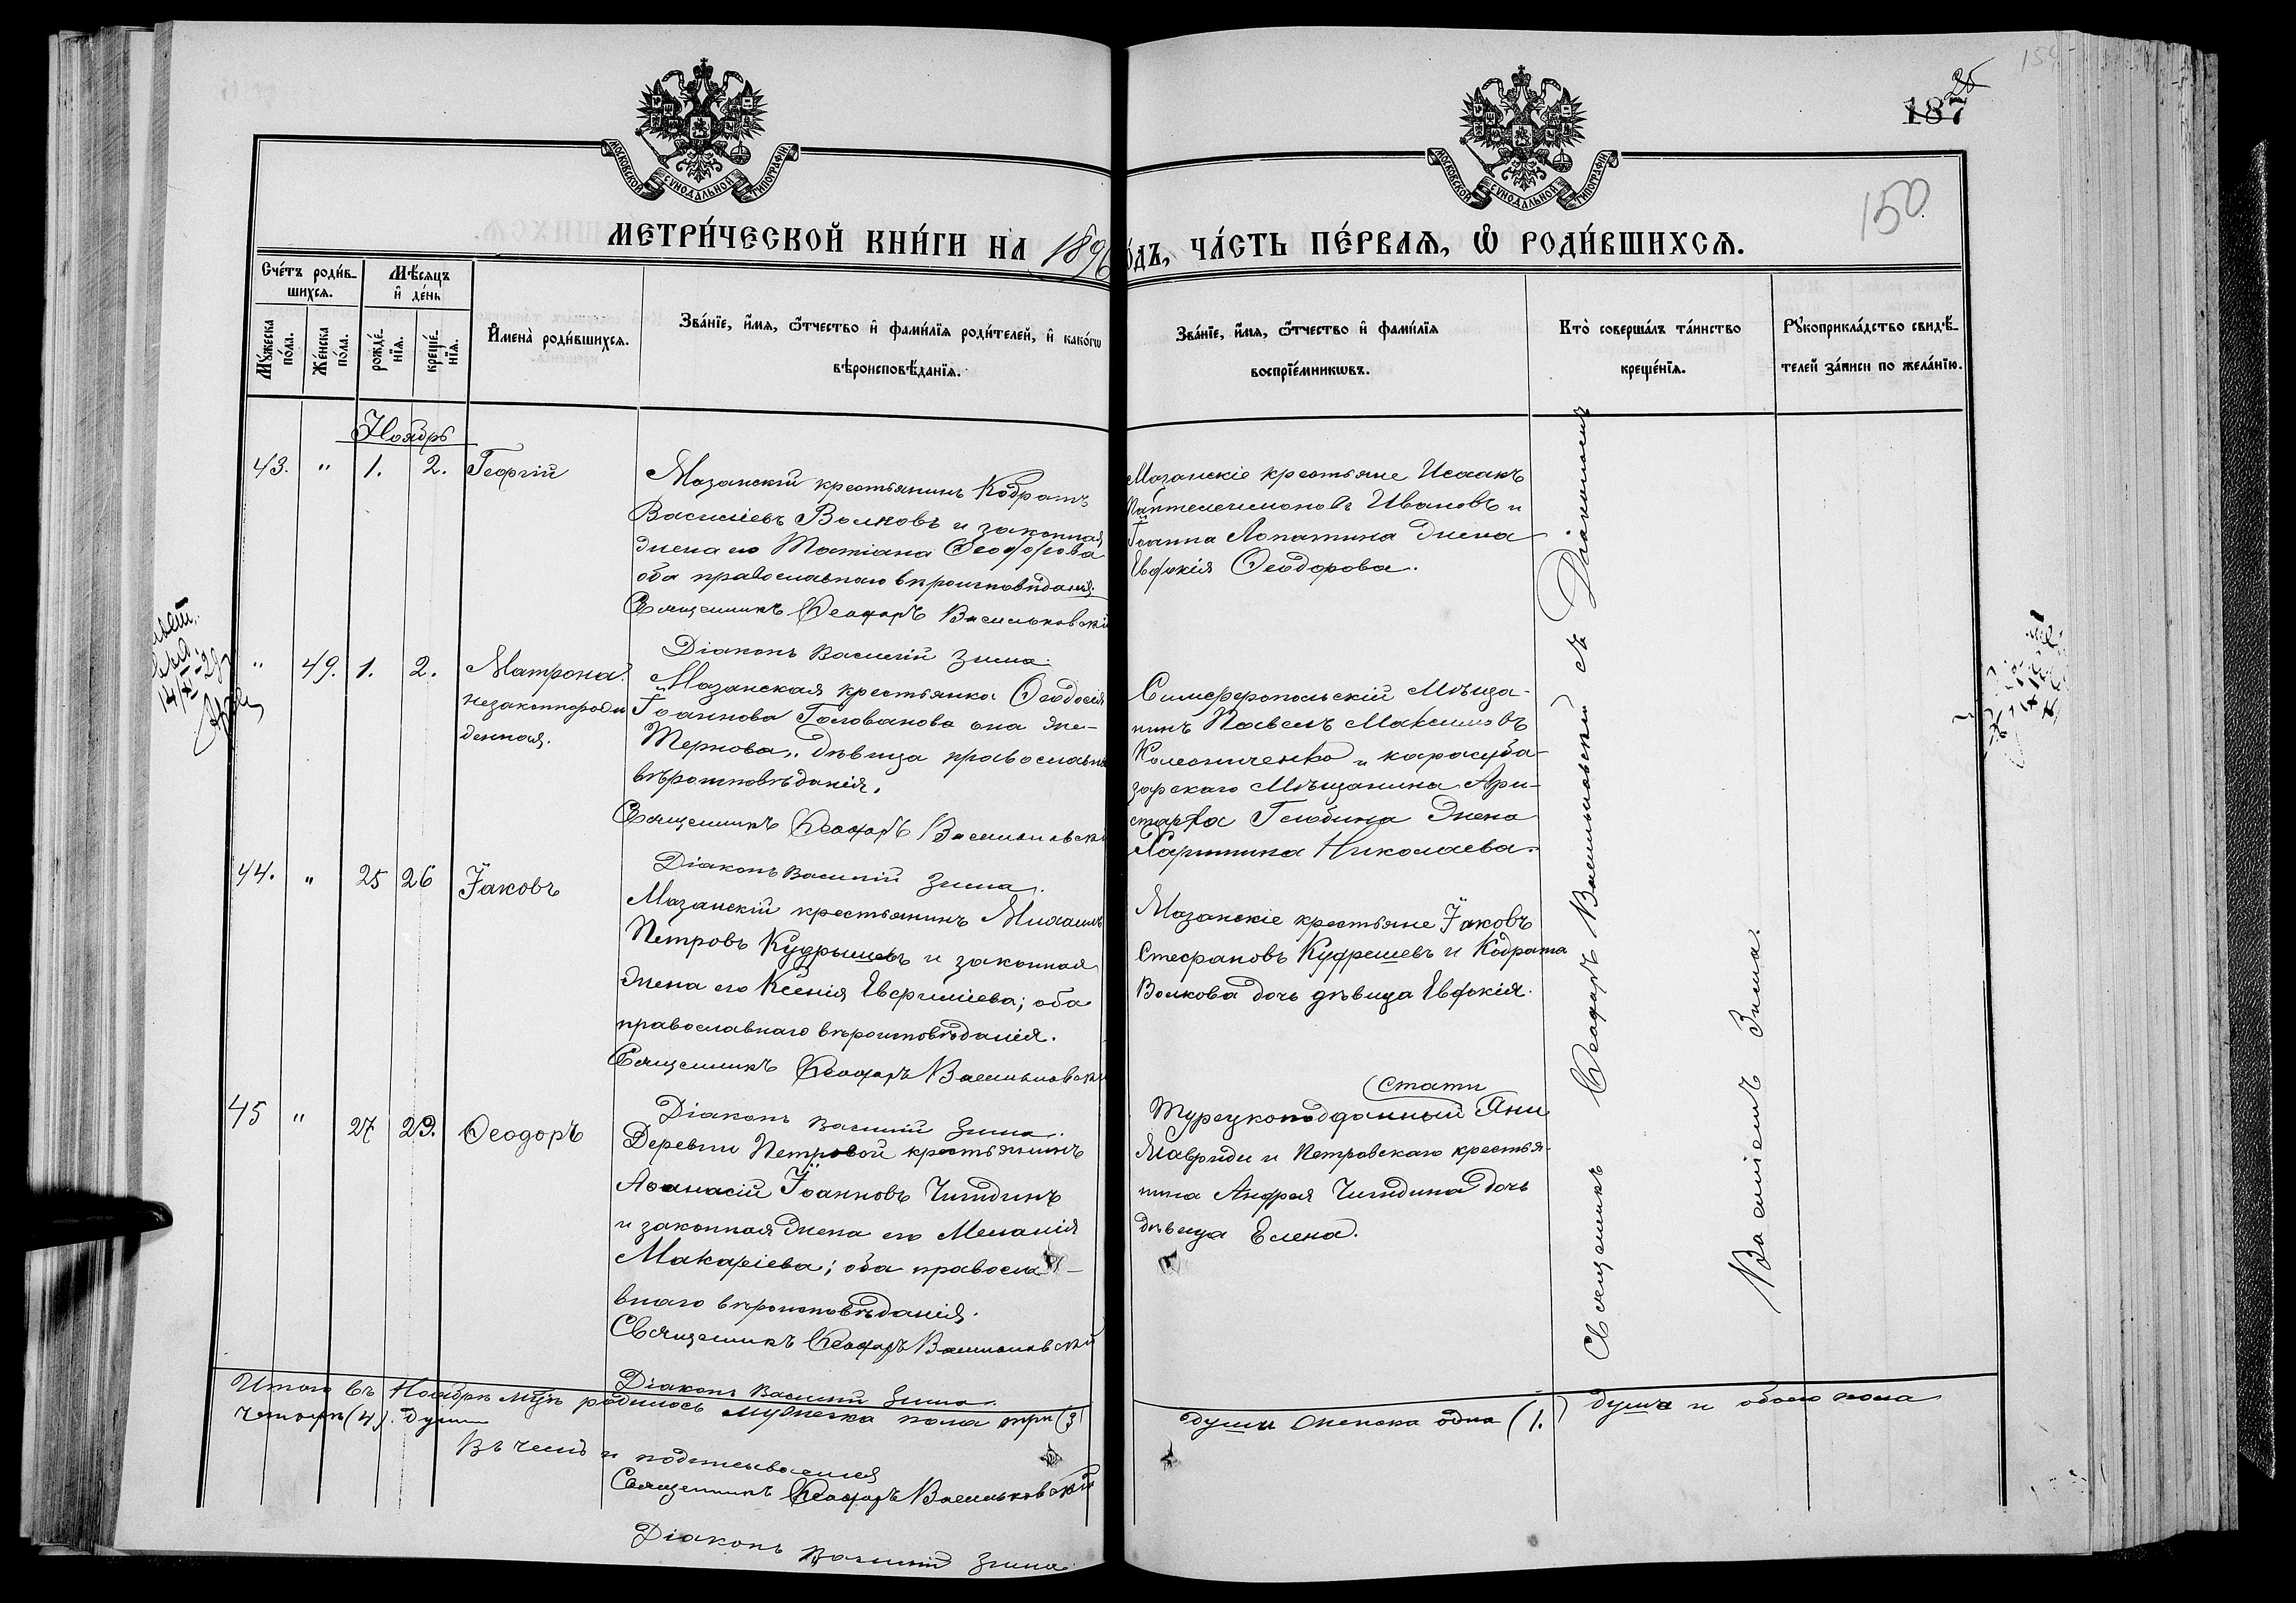 154
26
187
150
МОСКОВСКОЙ СѴНОДАЛЬНОЙ ТИПОГРАФІИ
МОСКОВСКОЙ СѴНОДАЛЬНОЙ ТИПОГРАФІИ
МЕТРИ́ЧЕСКОЙ КНИ́ГИ НА 1896
ѻдъ, ЧА́СТЬ ПЕ́РВАѦ, Ѽ РОДИ́ВШИХСѦ.
Сче́тъ роди́в-
шихсѧ.
Мѣ́сѧцъ
и҆ де́нь
Мꙋ́жеска по́ла.
Же́нска по́ла.
рожде́-нїѧ.
креще́-нїѧ.
И҆мена̀ роди́вшихсѧ.
Зва́нїе, и҆́мѧ, ѻ҆́тчество и҆ фами́лїѧ роди́телей, и҆ како́гѡ
вѣроисповѣ́данїѧ.
Зва́нїе, и҆́мѧ, ѻ҆́тчество и҆ фами́лїѧ
воспрїе́мникѡвъ.
Кто̀ соверша́лъ та́инство
креще́нїѧ.
Рꙋкоприкла́дство свидѣ́-
телей за́писи по жела́нїю.
Ноябрь
43. " 1. 2. Георгій
Мазанскій крестьянинъ Кодратъ
Василіевъ Волковъ и законная
жена его Татіана Ѳеодорова
оба православнаго вѣроисповѣданія.
Священникъ Ѳеодоръ Васильковскій
Діаконъ Василій Зима.
Мазанскіе крестьяне Исаакъ
Пантелеимоновъ Ивановъ и
Іоанна Лопатина жена
Евфкія Ѳеодорова.
" 49. 1. 2. Матрона
незаконнорож
денная.
Мазанская крестьянка Ѳеодосія
Іоаннова Голованова она же-
Тернова, дѣвица православна
вѣроисповѣданія.
Священникъ Ѳеодоръ Васильковскі
Діаконъ Василій Зима.
Симферопольскій Мѣща-
нинъ Павелъ Максимовъ
Колесниченко и карасуба-
зарскаго Мѣщанина Ари-
старха Голобина жена
Харитина Николаева.
44. " 25 26 Іаковъ
Мазанскій крестьянинъ Михаилъ
Петровъ Кудрышевъ и законная
жена его Ксенія Евфиміева; оба
православнаго вѣроисповѣданія.
Священникъ Ѳеодоръ Васильковскі
Діаконъ Василій Зима.
Мазанскіе крестьяне Іаковъ
Стефановъ Кудрешевъ и Кодрата
Волкова дочь дѣвица Евфкія.
45 " 27 29. Ѳеодоръ
Деревни Петровой крестьянинъ
Аѳанасій Іоанновъ Чигидинъ
и законная жена его Меланія
Макаріева; оба правосла-
внаго вѣроисповѣданія.
Священникъ Ѳеодоръ Васильковскій
Діаконъ Василій Зима.
Стати
Турецкоподданный Яни
Мавриди и Петровскаго крестья-
нина Андрея Чигидина дочь
дѣвица Елена.
Священникъ Ѳеодоръ Васильковскій съ Діакономъ
Василіемъ Зима.
Итого въ Ноябрѣ мцѣ родилось мужеска пола три (3)
души женска одна (1.) душа и обоего пола
четыре (4). души
Въ чемъ и подписываемся
Священникъ Ѳеодоръ Васильковскій
Діаконъ Василій Зима